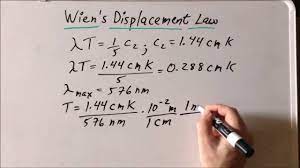 Wien's Displacement Law
λT = 1/5 c₂ ; c₂ = 1.44 cm K
λT = 1.44 cm K / 5 = 0.288 cm K
λmax = 576 nm
T = 1.44 cm K / 576 nm · 10⁻² m / 1 cm · 1 n